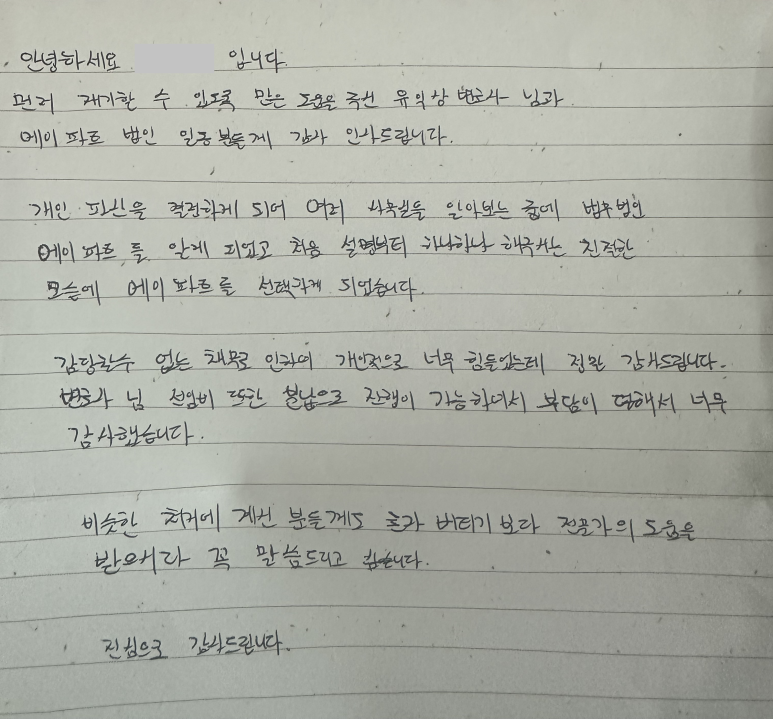 안녕하세요 입니다.
먼저 재기할 수 있도록 많은 도움을 주신 유익상 변호사 님과
에이 파트 법인 일동 분들께 감사 인사드립니다.
개인 파산을 결정하게 되어 여러 사무실들을 알아보는 중에 법무법인
에이 파트 를 알게 되었고 처음 설명부터 하나하나 해주시는 친절한
모습에 에이 파트를 선택하게 되었습니다.
감당할수 없는 채무로 인하여 개인적으로 너무 힘들었는데 정말 감사드립니다.
변호사 님 선임비 또한 분납으로 진행이 가능하여서 부담이 덜해서 너무
감사했습니다.
비슷한 처지에 계신 분들께도 혼자 버티기 보다 전문가의 도움을
받으시라 꼭 말씀드리고 싶습니다.
진심으로 감사드립니다.